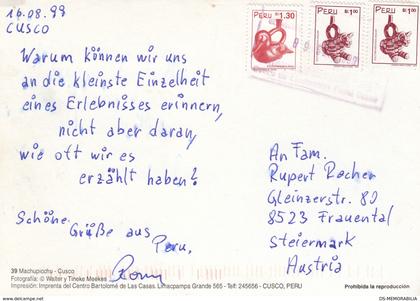 16.08.99
CUSCO
PERU S/.1.30
PERU S/.1.00
PERU S/.1.00
Warum können wir uns
an die kleinste Einzelheit
eines Erlebnisses erinnern,
nicht aber daran,
wie oft wir es
erzählt haben?
Schöne
Grüße aus
Peru,
Romy
An Fam.
Rupert Racher
Gleinzerstr. 80
8523 Frauental
Steiermark
Austria
39 Machupicchu - Cusco
Fotografía: © Walter y Tineke Meekes
Impresión: Imprenta del Centro Bartolomé de Las Casas. Limacpampa Grande 565 - Telf: 245656 - CUSCO, PERU
Prohibida la reproducción
DS-MEMORABILIA